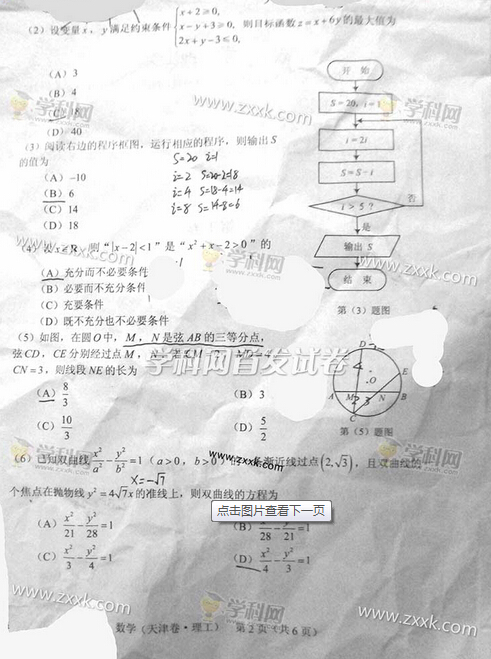 x+2≥0,
(2) 设变量x, y满足约束条件 x-y+3≥0, 则目标函数z=x+6y的最大值为
2x+y-3≤0,
(A) 3
(B) 4
(C) 18
(D) 40
(3) 阅读右边的程序框图,运行相应的程序,则输出S
的值为
S=20 i=1
(A) -10
i=2 S=20-2=18
(B) 6
i=4 S=18-4=14
(C) 14
i=8 S=14-8=6
(D) 18
开始
S=20, i=1
i=2i
S=S-i
i>5?
否
是
输出S
结束
第(3)题图
(4) x∈R, 则“|x-2|<1”是“x²+x-2>0”的
(A) 充分而不必要条件
(B) 必要而不充分条件
(C) 充要条件
(D) 既不充分也不必要条件
(5) 如图,在圆O中, M, N是弦AB的三等分点,
弦CD, CE分别经过点M,
CN=3, 则线段NE的长为
(A) 8/3
(B) 3
(C) 10/3
(D) 5/2
D
E
O
A M N B
C
4
2 3
第(5)题图
(6) 已知双曲线 x²/a² - y²/b² =1 (a>0, b>0) 渐近线过点(2,√3), 且双曲线的
x=-√7
个焦点在抛物线y²=4√7x的准线上,则双曲线的方程为
(A) x²/21 - y²/28 =1
(B) x²/28 - y²/21 =1
(C) x²/3 - y²/4 =1
(D) x²/4 - y²/3 =1
点击图片查看下一页
数学(天津卷·理工) 第2页(共6页)
学科网
www.zxxk.com
学科网首发试卷